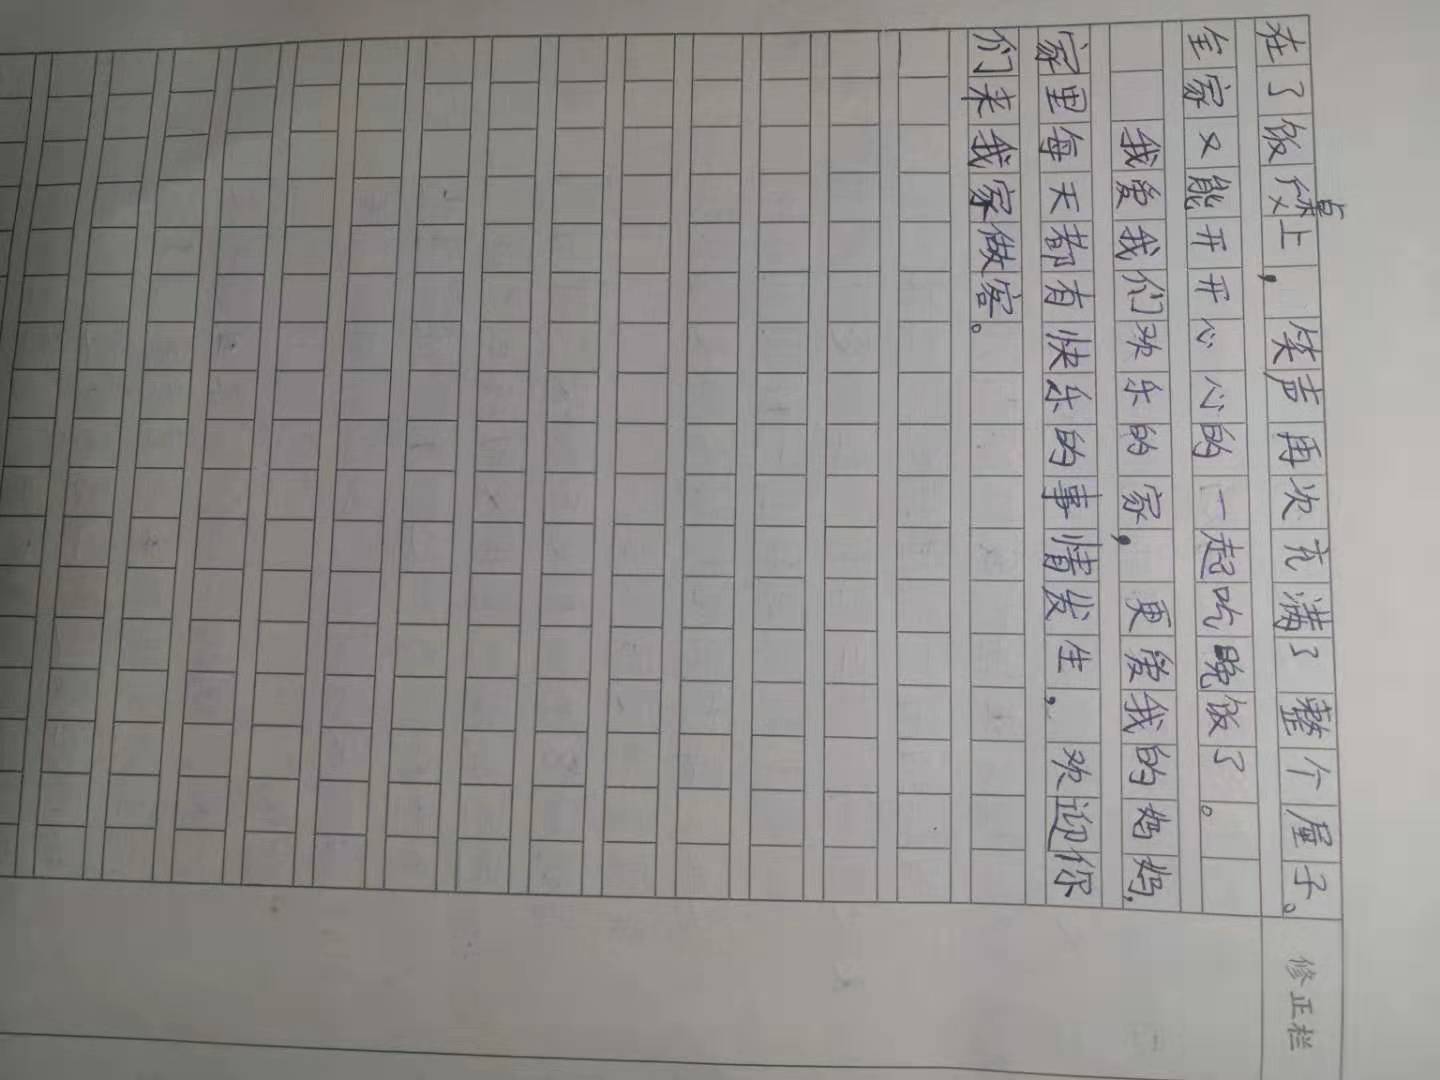 在了饭桌上，笑声再次充满了整个屋子。
全家又能开开心心的一起吃晚饭了。
我爱我们欢乐的家，更爱我的妈妈，
家里每天都有快乐的事情发生，欢迎你
们来我家做客。
修正栏